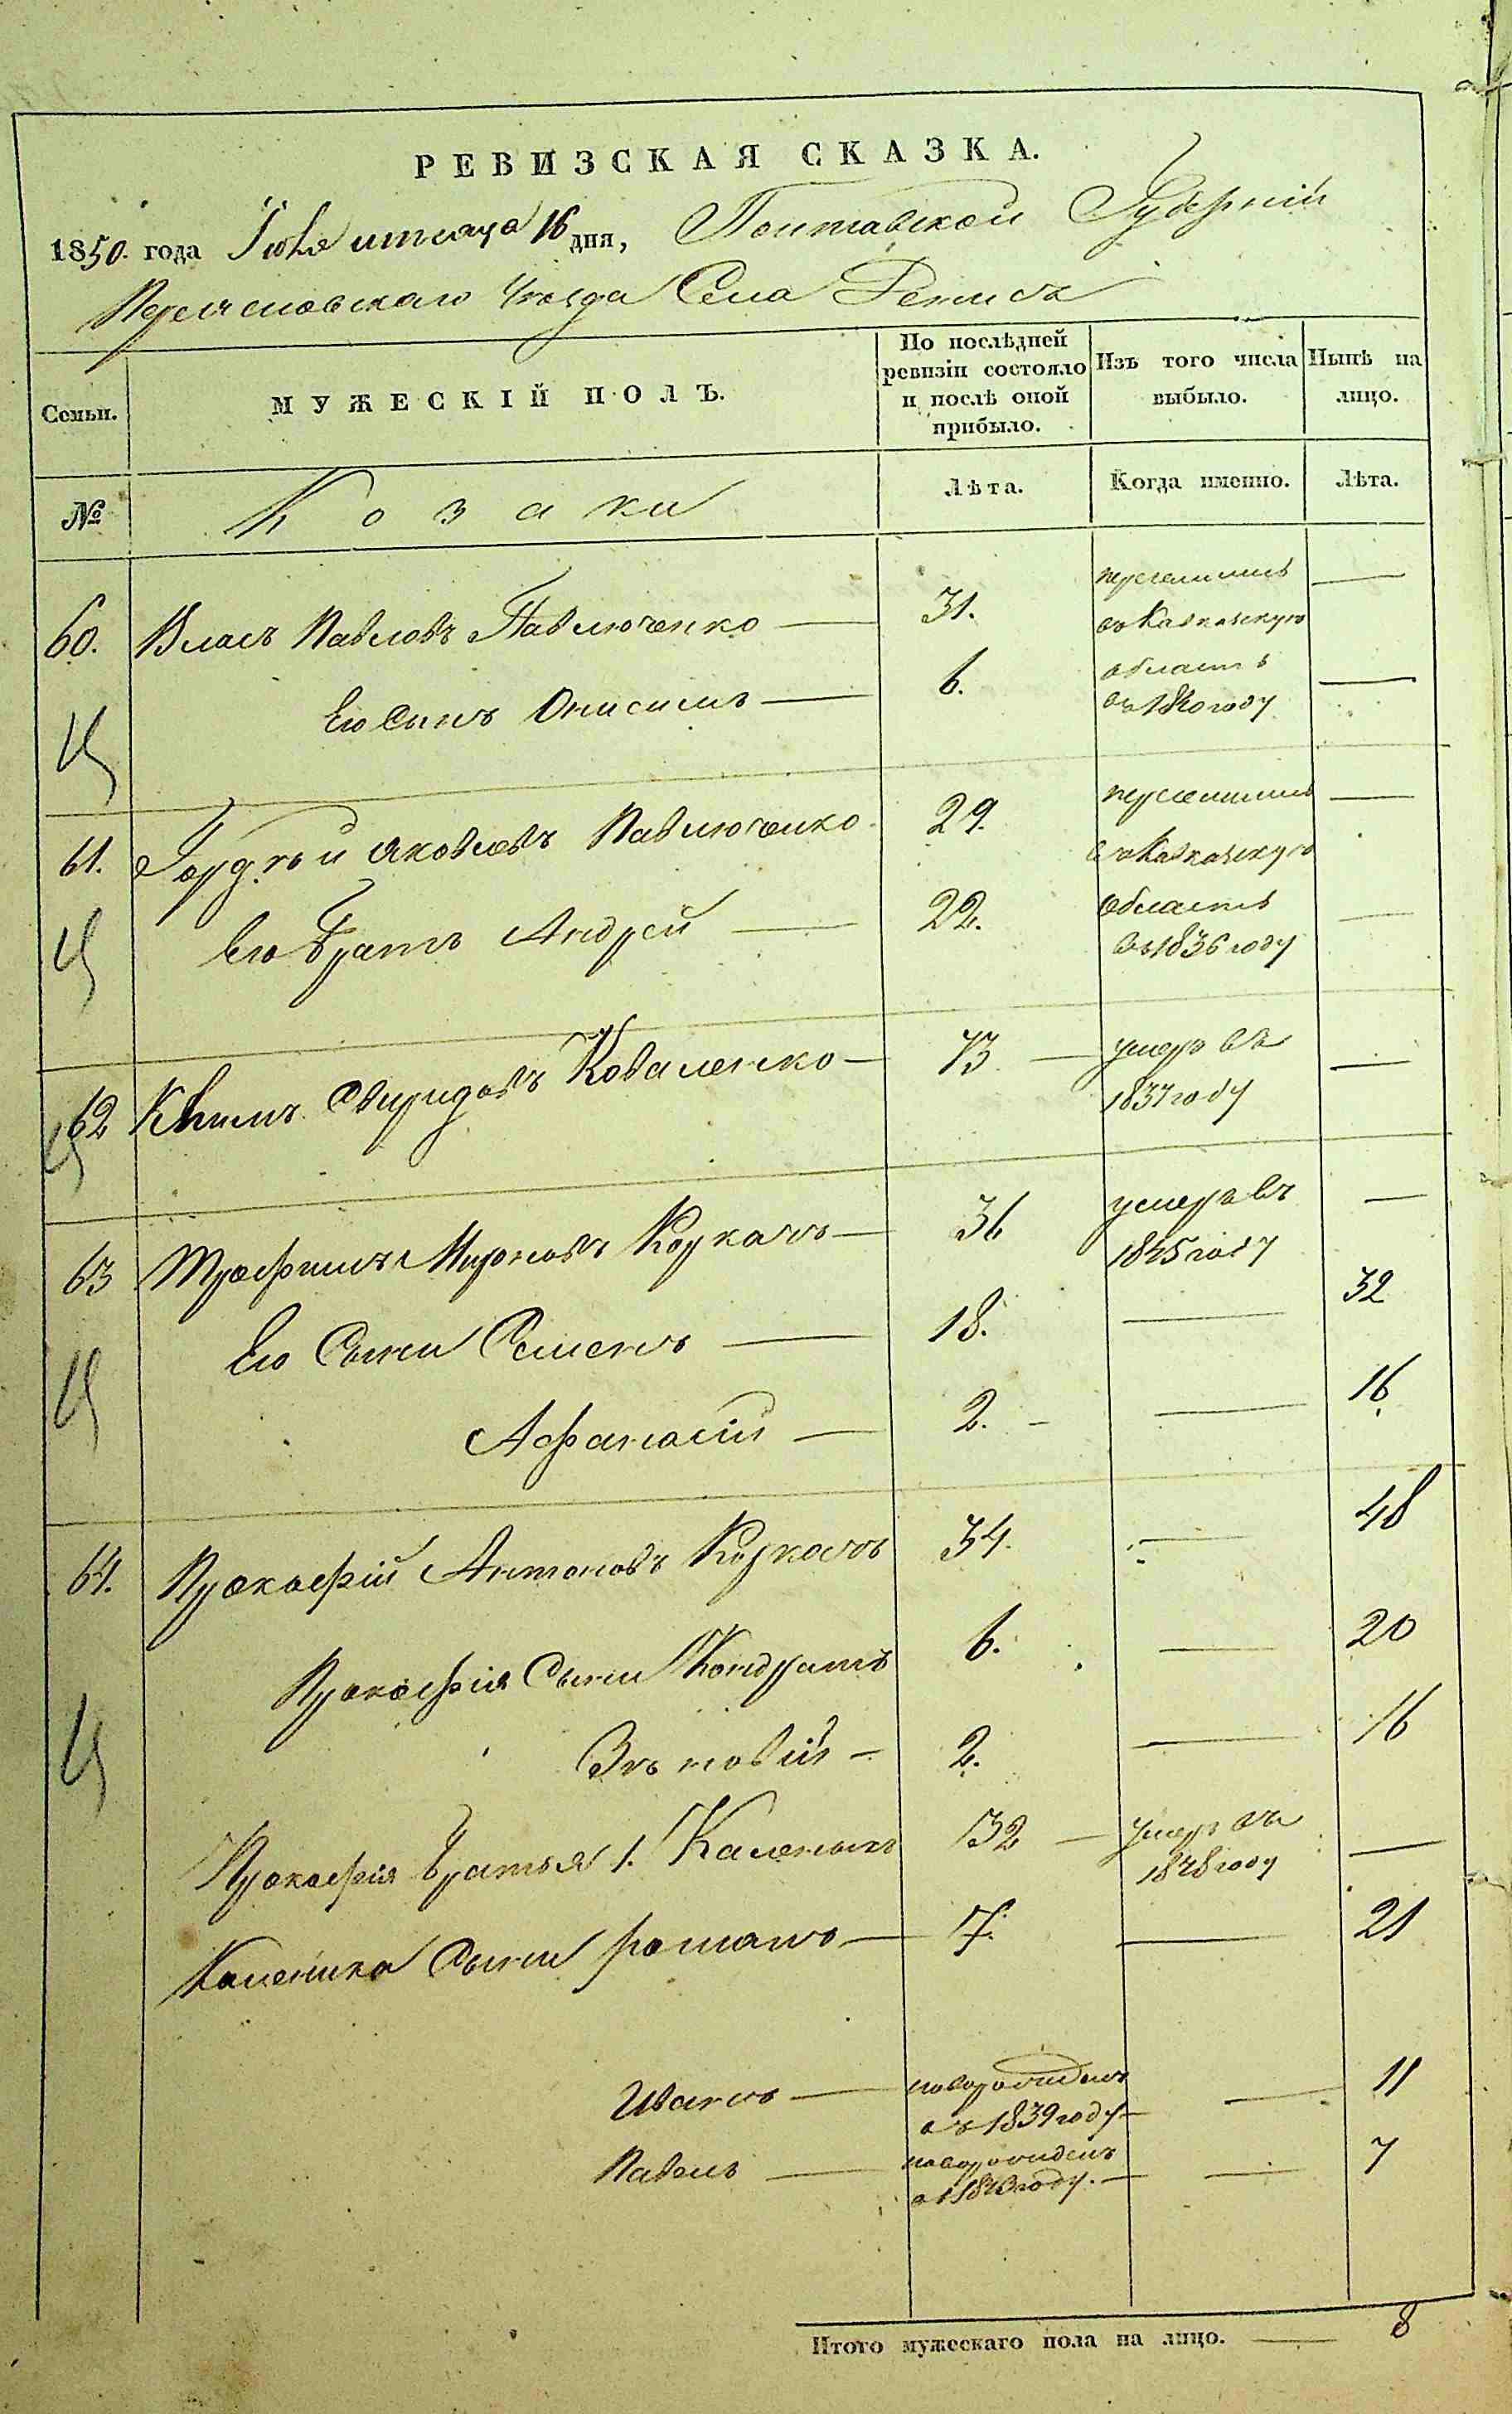 РЕВИЗСКАЯ СКАЗКА.
1850. года Іюля мѣсяца 16 дня, Полтавской Губерніи
Переясловскаго Уѣзда Села
Семьи.
МУЖЕСКІЙ ПОЛЪ.
По послѣдней ревизіи состояло и послѣ оной прибыло.
Изъ того числа выбыло.
Нынѣ на лицо.
№
Козаки
Лѣта.
Когда именно.
Лѣта.
60. Власъ Павловъ Павлюченко — 31. переселились —
въ Кавказскую
Его Сынъ Онисимъ — 6. область —
въ 1840 году
61. Гордѣй Яковлевъ Павлюченко 29. переселились —
въ Кавказскую
Его Братъ Андрей — 22. область —
въ 1836 году
62 Свиридовъ Коваленко — 73 — умеръ въ —
1837 году
63 Трофимъ Мироновъ Коркачъ — 36 умеръ въ —
1845 году
Его Сыни Семенъ — 18. — 32
Афанасій — 2. — — 16
64. Прокофій Антоновъ Коркачъ 34. — 48
Прокофія Сыни Кондратъ 6. — 20
Зѣновій — 2. — 16
Прокофія Братья 1. Каленикъ 32 — умеръ въ —
1848 году
Каленика Сыни романъ — 7. — 21
Иванъ — новорожденъ — 11
въ 1839 году —
Павелъ — новорожденъ — 7
в 1843 году. —
Итого мужескаго пола на лицо. — 8